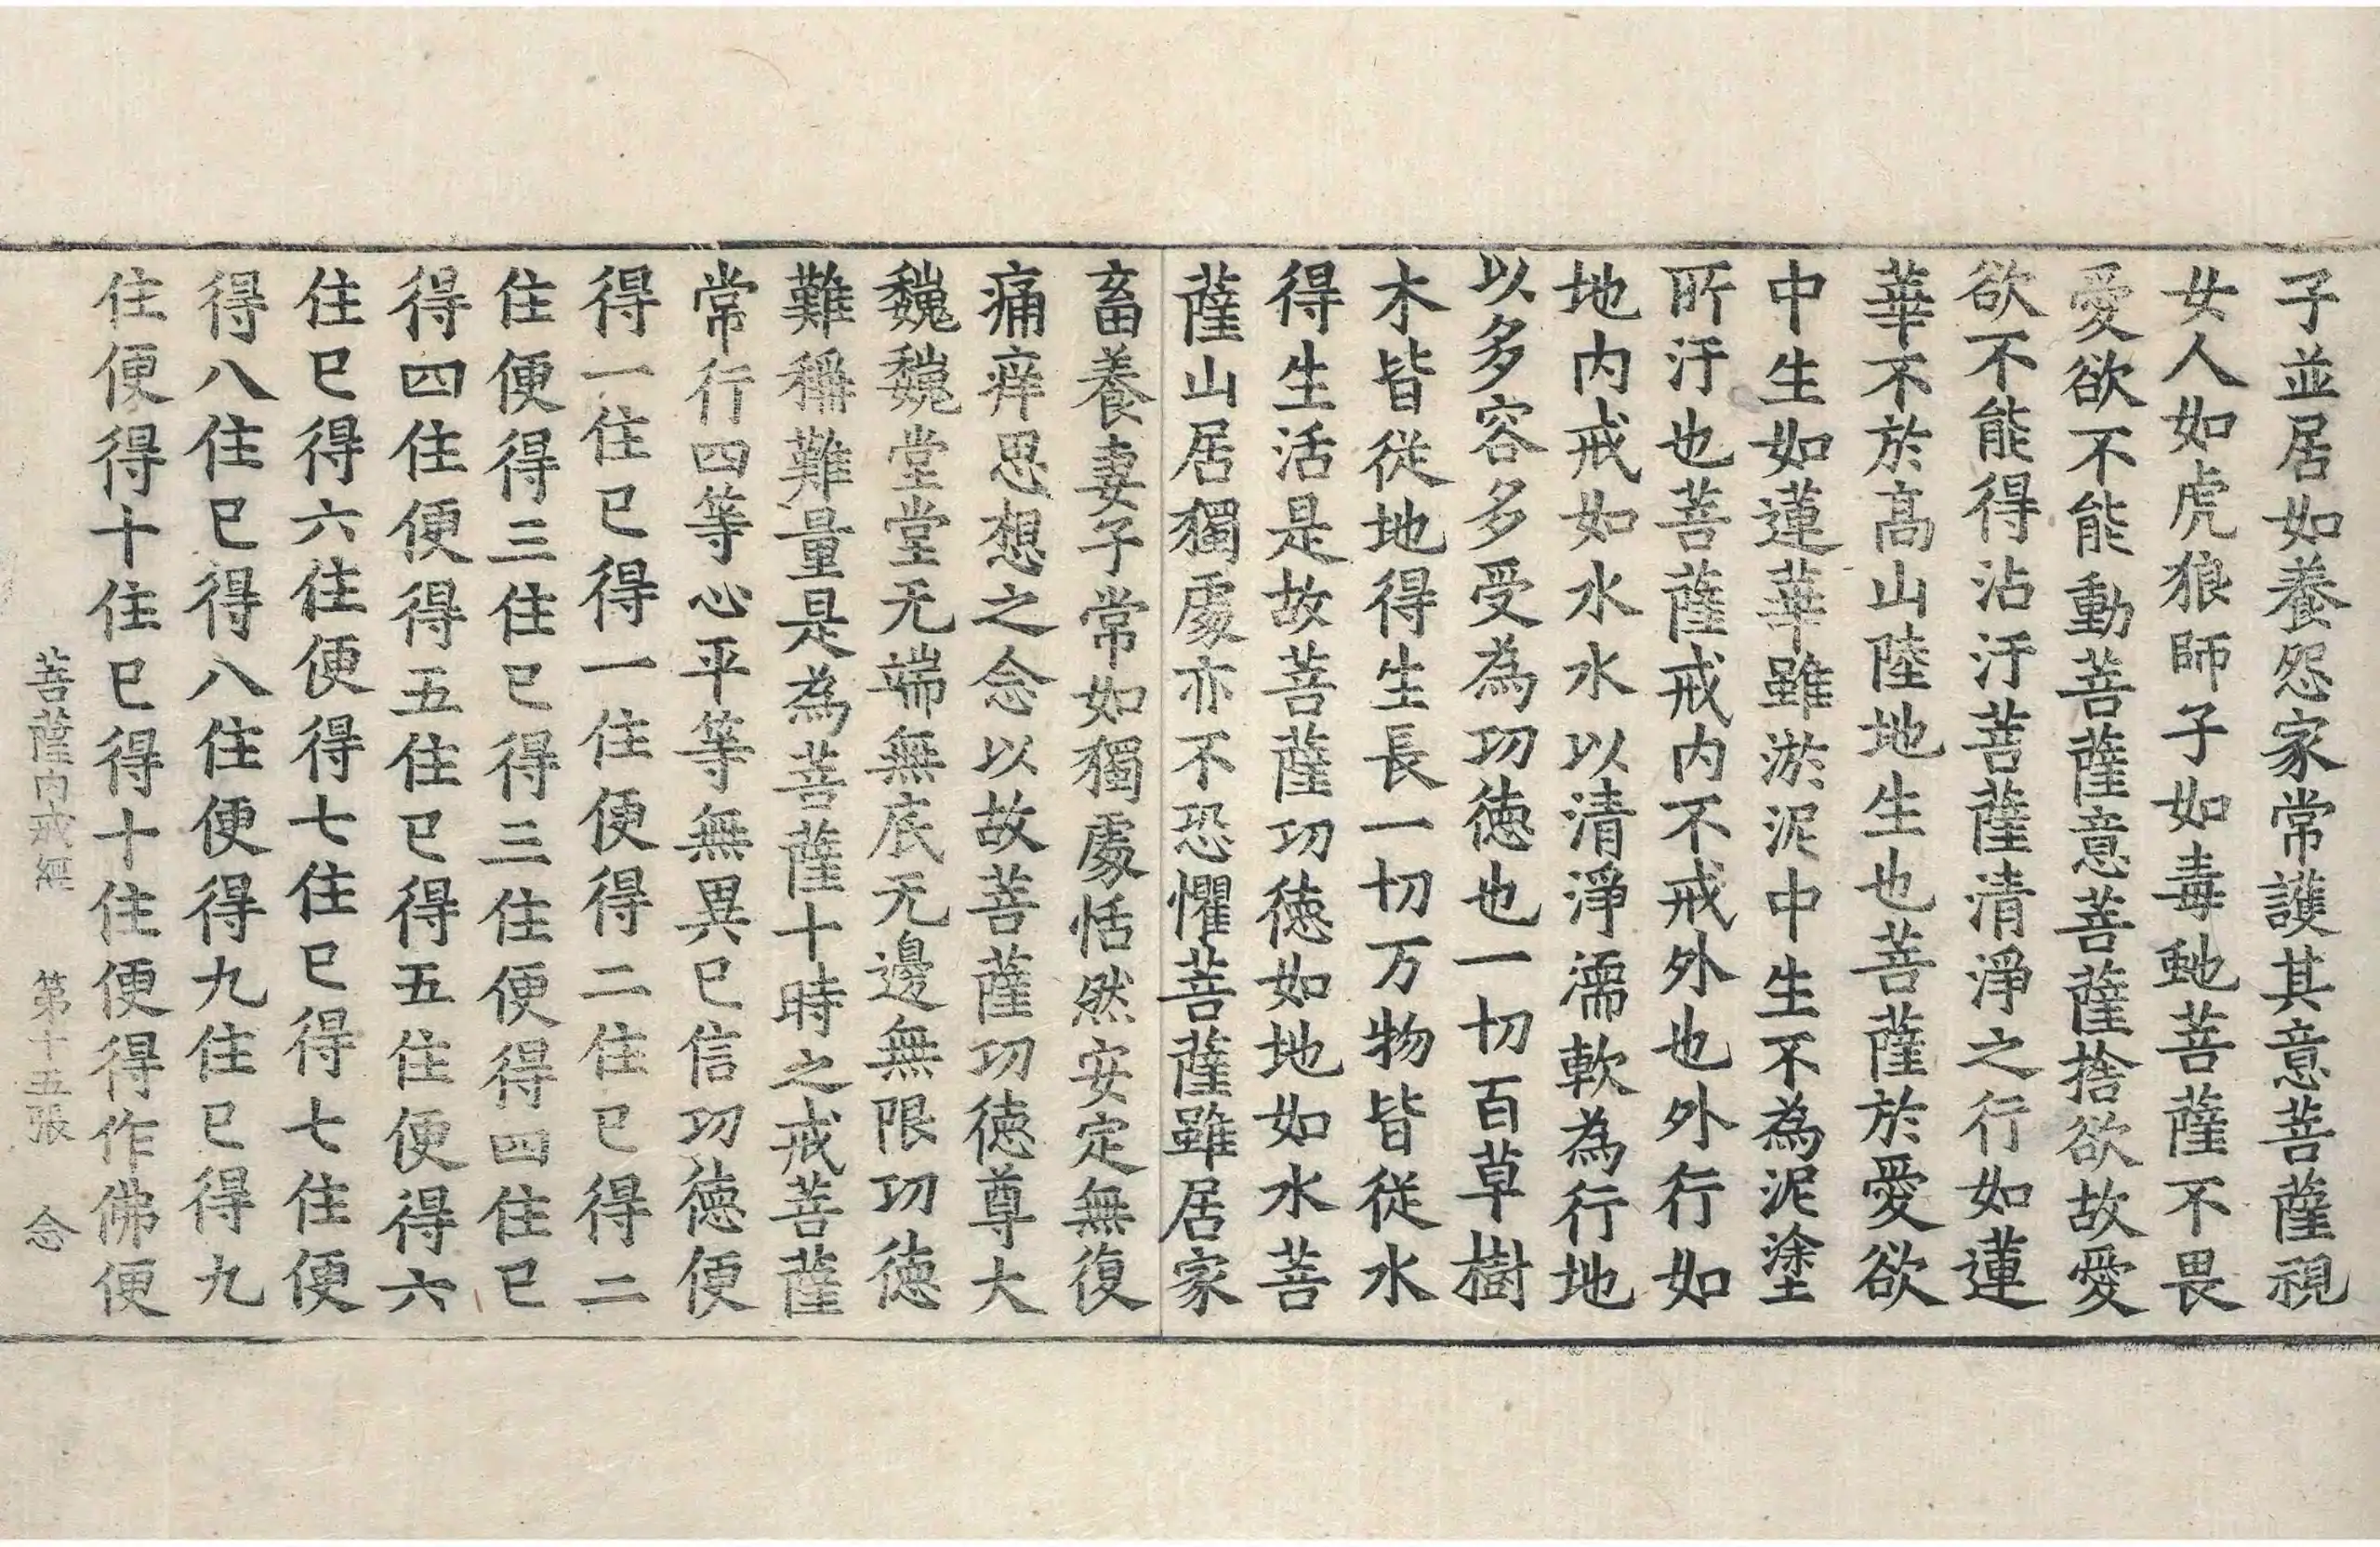 子並居如養怨家常護其意菩薩視
女人如虎狼師子如毒虵菩薩不畏
愛欲不能動菩薩意菩薩捨欲故愛
欲不能得沾汙菩薩清淨之行如蓮
華不於高山陸地生也菩薩於愛欲
中生如蓮華雖淤泥中生不為泥塗
所汙也菩薩戒内不戒外也外行如
地内戒如水水以清淨濡軟為行地
以多容多受為功徳也一切百草樹
木皆從地得生長一切万物皆從水
得生活是故菩薩功徳如地如水菩
薩山居獨處亦不恐懼菩薩雖居家
畜養妻子常如獨處恬然安定無復
痛痒思想之念以故菩薩功徳尊大
巍巍堂堂无端無底无邊無限功徳
難稱難量是為菩薩十時之戒菩薩
常行四等心平等無異已信功徳便
得一住已得一住便得二住已得二
住便得三住已得三住便得四住已
得四住便得五住已得五住便得六
住已得六住便得七住已得七住便
得八住已得八住便得九住已得九
住便得十住已得十住便得作佛便
菩薩内戒經 第十五張 念